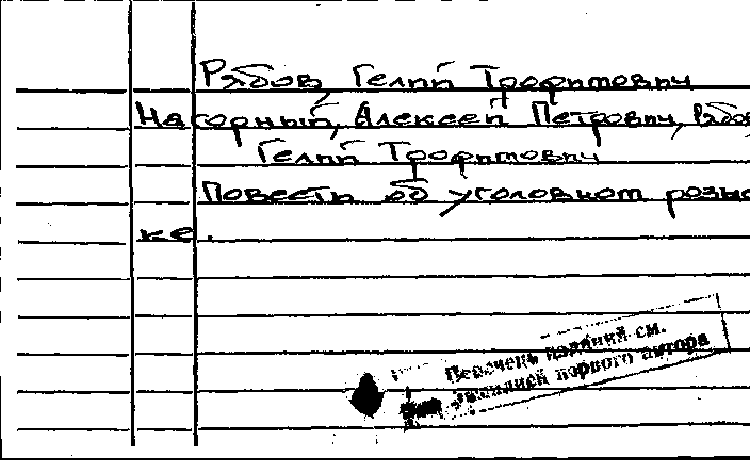 Рябов, Гелий Трофимович
Нагорный, Алексей Петрович, Рябов
Гелий Трофимович
Повесть об уголовном розыс
ке.
Перечень изданий см.
первого автора